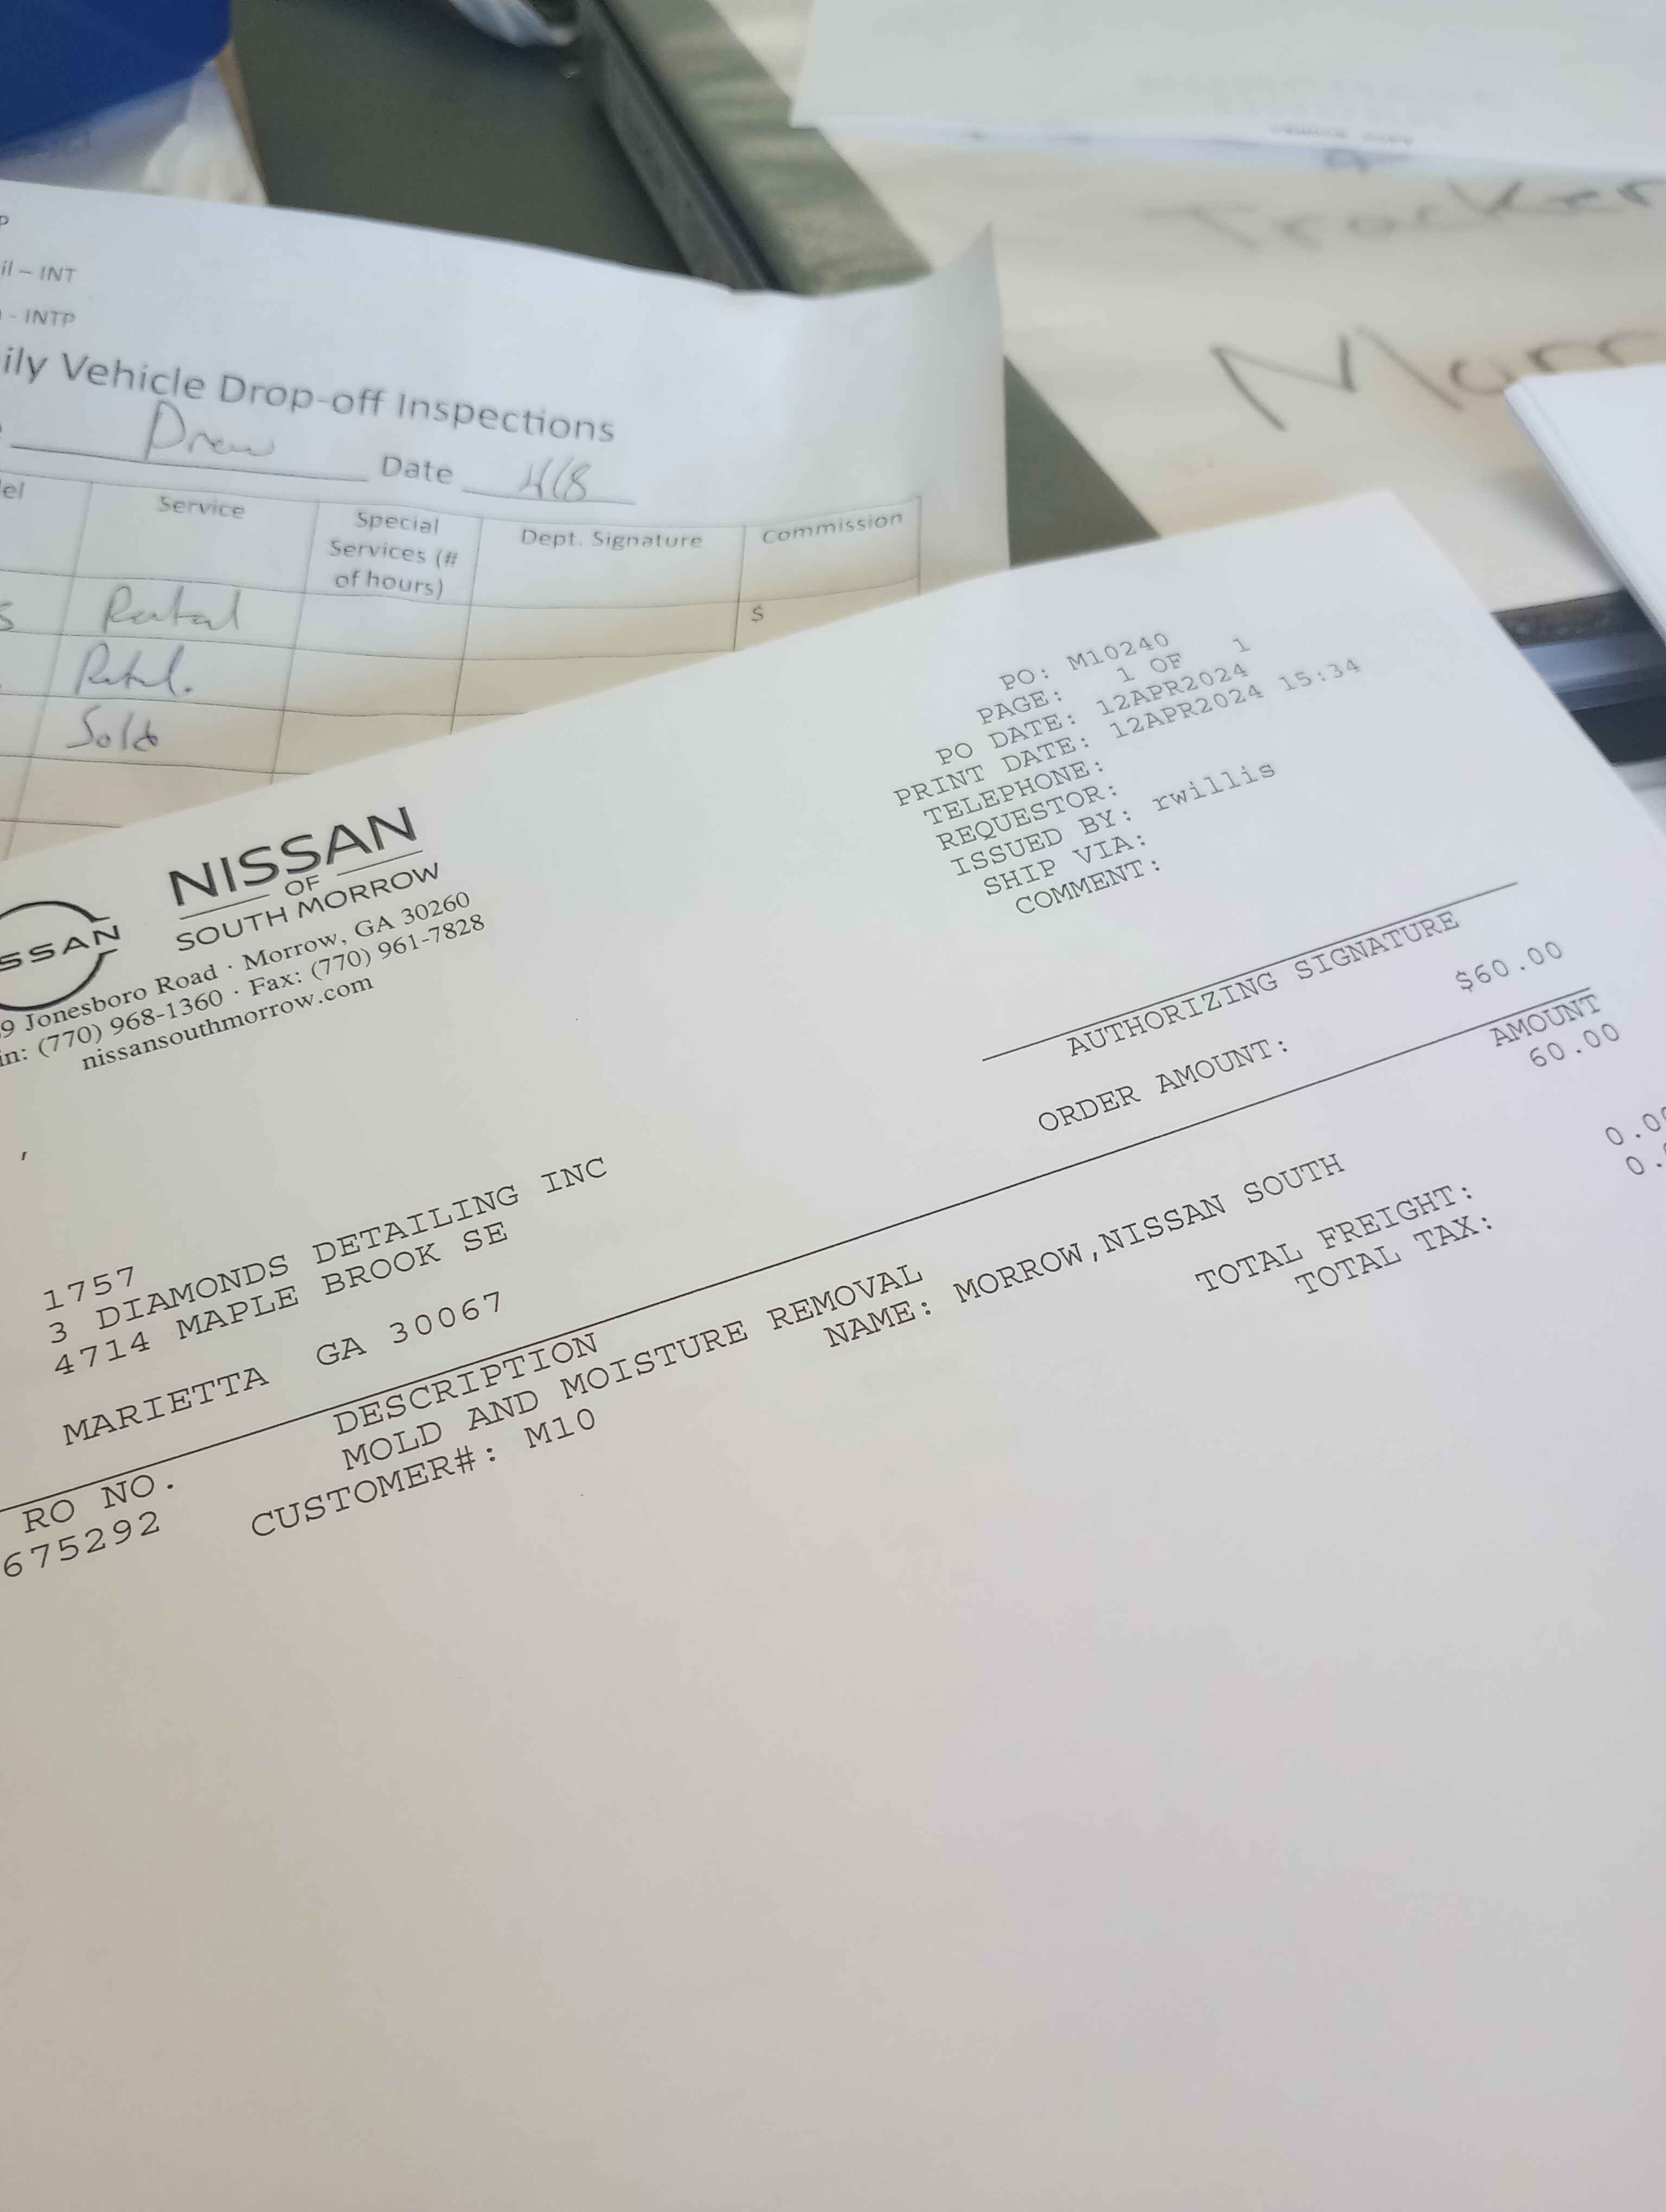 il – INT
- INTP
ily Vehicle Drop-off Inspections
Drew Date 4/8
el Service Special Services (# of hours) Dept. Signature Commission
S Retail $
Retail.
Sold
Tracker
Morr
NISSAN
OF
SOUTH MORROW
SSAN
9 Jonesboro Road · Morrow, GA 30260
in: (770) 968-1360 · Fax: (770) 961-7828
nissansouthmorrow.com
PO: M10240
PAGE: 1 OF 1
PO DATE: 12APR2024
PRINT DATE: 12APR2024 15:34
TELEPHONE:
REQUESTOR:
ISSUED BY: rwillis
SHIP VIA:
COMMENT:
AUTHORIZING SIGNATURE
ORDER AMOUNT: $60.00
1757
3 DIAMONDS DETAILING INC
4714 MAPLE BROOK SE
MARIETTA GA 30067
RO NO. DESCRIPTION AMOUNT
675292 MOLD AND MOISTURE REMOVAL 60.00
CUSTOMER#: M10 NAME: MORROW,NISSAN SOUTH
TOTAL FREIGHT: 0.00
TOTAL TAX: 0.